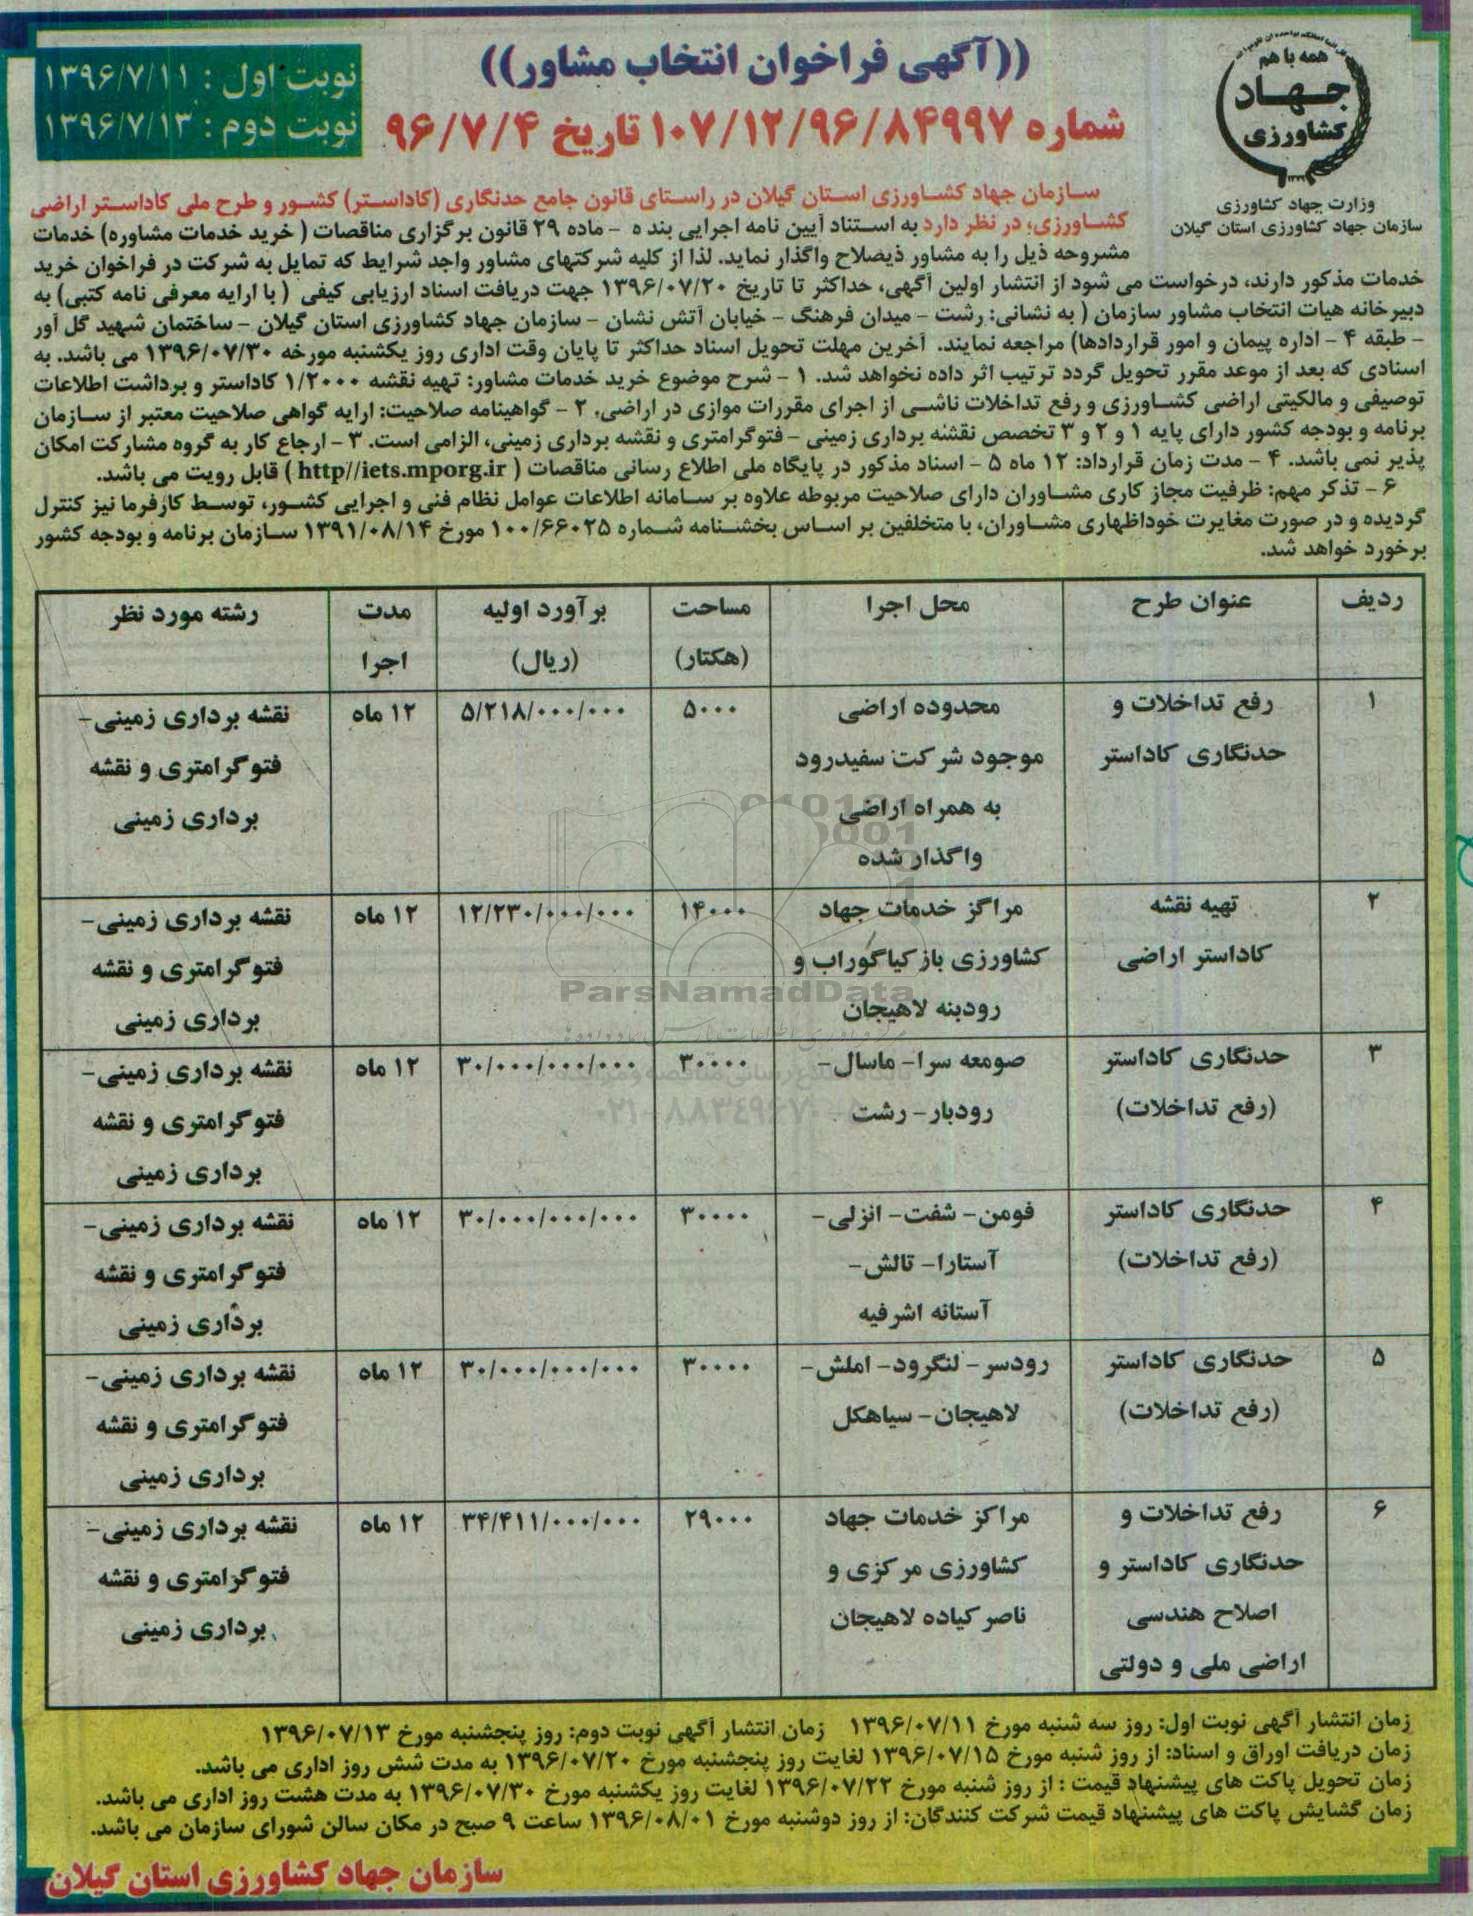 ((آگهی فراخوان انتخاب مشاور))
شماره ۱۰۷/۱۲/۹۶/۸۴۹۹۷ تاریخ ۹۶/۷/۴
نوبت اول : ۱۳۹۶/۷/۱۱
نوبت دوم : ۱۳۹۶/۷/۱۳
همه با هم
جهاد
کشاورزی
وزارت جهاد کشاورزی
سازمان جهاد کشاورزی استان گیلان
سازمان جهاد کشاورزی استان گیلان در راستای قانون جامع حدنگاری (کاداستر) کشور و طرح ملی کاداستر اراضی
کشاورزی؛ در نظر دارد به استناد آیین نامه اجرایی بند ه - ماده ۲۹ قانون برگزاری مناقصات ( خرید خدمات مشاوره) خدمات
مشروحه ذیل را به مشاور ذیصلاح واگذار نماید. لذا از کلیه شرکتهای مشاور واجد شرایط که تمایل به شرکت در فراخوان خرید
خدمات مذکور دارند، درخواست می شود از انتشار اولین آگهی، حداکثر تا تاریخ ۱۳۹۶/۰۷/۲۰ جهت دریافت اسناد ارزیابی کیفی ( با ارایه معرفی نامه کتبی) به
دبیرخانه هیات انتخاب مشاور سازمان ( به نشانی: رشت - میدان فرهنگ - خیابان آتش نشان - سازمان جهاد کشاورزی استان گیلان - ساختمان شهید گل آور
- طبقه ۴ - اداره پیمان و امور قراردادها) مراجعه نمایند. آخرین مهلت تحویل اسناد حداکثر تا پایان وقت اداری روز یکشنبه مورخه ۱۳۹۶/۰۷/۳۰ می باشد. به
اسنادی که بعد از موعد مقرر تحویل گردد ترتیب اثر داده نخواهد شد. ۱ - شرح موضوع خرید خدمات مشاور: تهیه نقشه ۱/۲۰۰۰ کاداستر و برداشت اطلاعات
توصیفی و مالکیتی اراضی کشاورزی و رفع تداخلات ناشی از اجرای مقررات موازی در اراضی. ۲ - گواهینامه صلاحیت: ارایه گواهی صلاحیت معتبر از سازمان
برنامه و بودجه کشور دارای پایه ۱ و ۲ و ۳ تخصص نقشه برداری زمینی - فتوگرامتری و نقشه برداری زمینی، الزامی است. ۳ - ارجاع کار به گروه مشارکت امکان
پذیر نمی باشد. ۴ - مدت زمان قرارداد: ۱۲ ماه ۵ - اسناد مذکور در پایگاه ملی اطلاع رسانی مناقصات ( http//iets.mporg.ir ) قابل رویت می باشد.
۶ - تذکر مهم: ظرفیت مجاز کاری مشاوران دارای صلاحیت مربوطه علاوه بر سامانه اطلاعات عوامل نظام فنی و اجرایی کشور، توسط کارفرما نیز کنترل
گردیده و در صورت مغایرت خوداظهاری مشاوران، با متخلفین بر اساس بخشنامه شماره ۱۰۰/۶۶۰۲۵ مورخ ۱۳۹۱/۰۸/۱۴ سازمان برنامه و بودجه کشور
برخورد خواهد شد.
ردیف عنوان طرح محل اجرا مساحت برآورد اولیه مدت رشته مورد نظر
(هکتار) (ریال) اجرا
۱ رفع تداخلات و محدوده اراضی ۵۰۰۰ ۵/۲۱۸/۰۰۰/۰۰۰ ۱۲ ماه نقشه برداری زمینی-
حدنگاری کاداستر موجود شرکت سفیدرود فتوگرامتری و نقشه
به همراه اراضی برداری زمینی
واگذار شده
۲ تهیه نقشه مراکز خدمات جهاد ۱۴۰۰۰ ۱۲/۲۳۰/۰۰۰/۰۰۰ ۱۲ ماه نقشه برداری زمینی-
کاداستر اراضی کشاورزی بازکیاگوراب و فتوگرامتری و نقشه
رودبنه لاهیجان برداری زمینی
۳ حدنگاری کاداستر صومعه سرا- ماسال- ۳۰۰۰۰ ۳۰/۰۰۰/۰۰۰/۰۰۰ ۱۲ ماه نقشه برداری زمینی-
(رفع تداخلات) رودبار- رشت فتوگرامتری و نقشه
برداری زمینی
۴ حدنگاری کاداستر فومن- شفت- انزلی- ۳۰۰۰۰ ۳۰/۰۰۰/۰۰۰/۰۰۰ ۱۲ ماه نقشه برداری زمینی-
(رفع تداخلات) آستارا- تالش- فتوگرامتری و نقشه
آستانه اشرفیه برداری زمینی
۵ حدنگاری کاداستر رودسر- لنگرود- املش- ۳۰۰۰۰ ۳۰/۰۰۰/۰۰۰/۰۰۰ ۱۲ ماه نقشه برداری زمینی-
(رفع تداخلات) لاهیجان- سیاهکل فتوگرامتری و نقشه
برداری زمینی
۶ رفع تداخلات و مراکز خدمات جهاد ۲۹۰۰۰ ۳۴/۴۱۱/۰۰۰/۰۰۰ ۱۲ ماه نقشه برداری زمینی-
حدنگاری کاداستر و کشاورزی مرکزی و فتوگرامتری و نقشه
اصلاح هندسی ناصرکیاده لاهیجان برداری زمینی
اراضی ملی و دولتی
ParsNamadData
۰۲۱-۸۸۳۴۹۶۷۰
زمان انتشار آگهی نوبت اول: روز سه شنبه مورخ ۱۳۹۶/۰۷/۱۱ زمان انتشار آگهی نوبت دوم: روز پنجشنبه مورخ ۱۳۹۶/۰۷/۱۳
زمان دریافت اوراق و اسناد: از روز شنبه مورخ ۱۳۹۶/۰۷/۱۵ لغایت روز پنجشنبه مورخ ۱۳۹۶/۰۷/۲۰ به مدت شش روز اداری می باشد.
زمان تحویل پاکت های پیشنهاد قیمت : از روز شنبه مورخ ۱۳۹۶/۰۷/۲۲ لغایت روز یکشنبه مورخ ۱۳۹۶/۰۷/۳۰ به مدت هشت روز اداری می باشد.
زمان گشایش پاکت های پیشنهاد قیمت شرکت کنندگان: از روز دوشنبه مورخ ۱۳۹۶/۰۸/۰۱ ساعت ۹ صبح در مکان سالن شورای سازمان می باشد.
سازمان جهاد کشاورزی استان گیلان